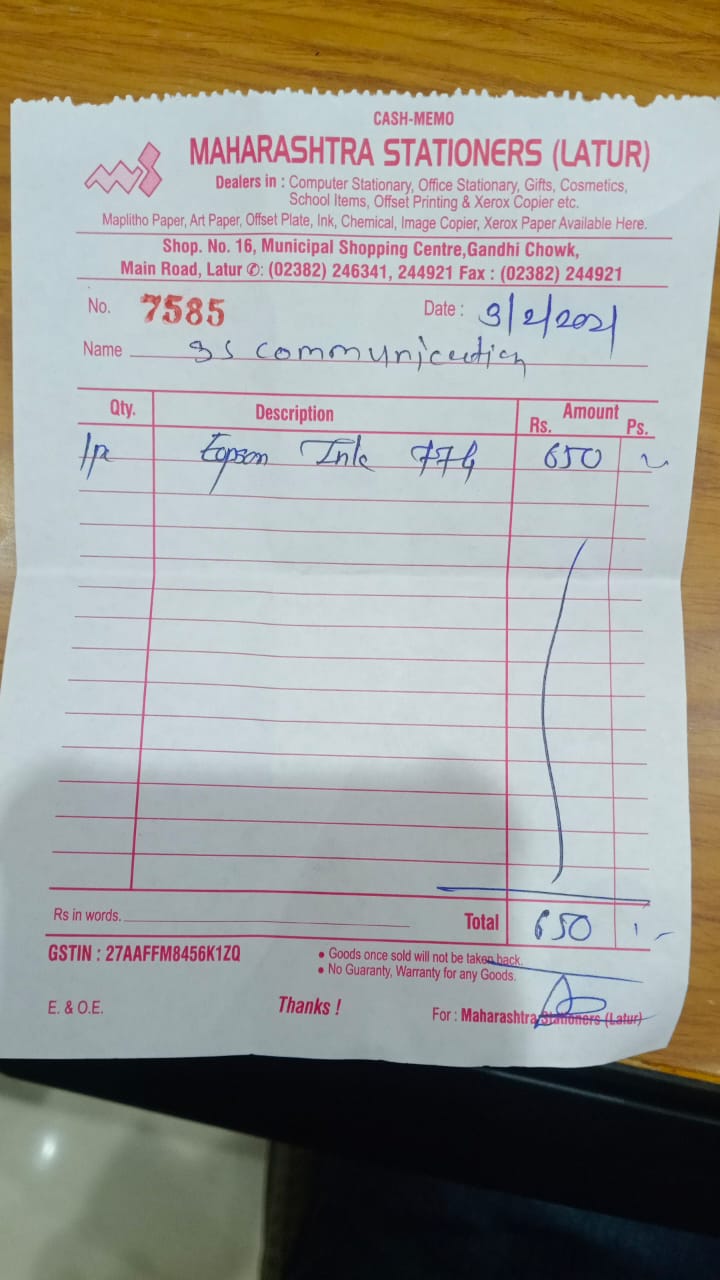 CASH-MEMO
MAHARASHTRA STATIONERS (LATUR)
Dealers in : Computer Stationary, Office Stationary, Gifts, Cosmetics,
School Items, Offset Printing & Xerox Copier etc.
Maplitho Paper, Art Paper, Offset Plate, Ink, Chemical, Image Copier, Xerox Paper Available Here.
Shop. No. 16, Municipal Shopping Centre,Gandhi Chowk,
Main Road, Latur ✆: (02382) 246341, 244921 Fax : (02382) 244921
No. 7585 Date : 9/2/2021
Name communication
Qty. Description Amount
Rs. Ps.
Epson Ink 774 650
Rs in words. Total 650
GSTIN : 27AAFFM8456K1ZQ
• Goods once sold will not be taken back.
• No Guaranty, Warranty for any Goods.
E. & O.E. Thanks ! For : Maharashtra Stationers (Latur)